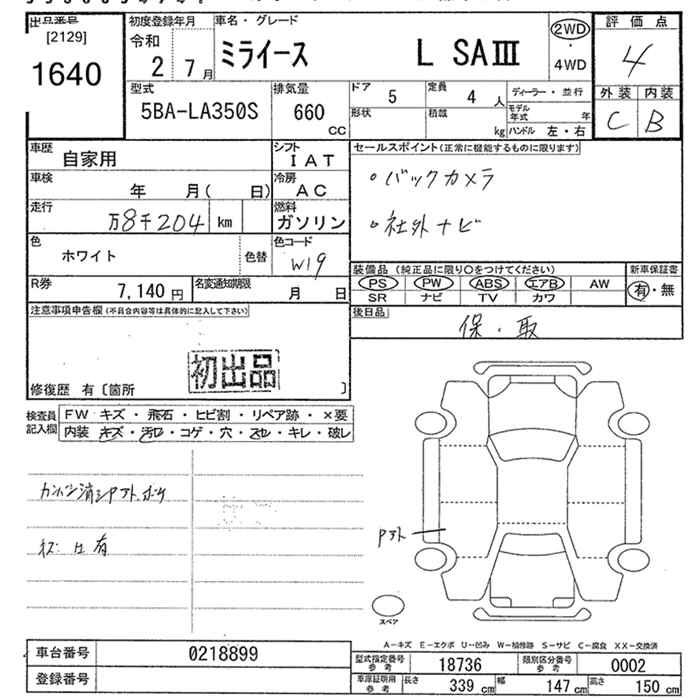 出品番号 初度登録年月 車名・グレード 評価点
[2129] 令和 ミライース L SAⅢ 2WD・4WD 4
1640 2 7月
型式 排気量 ドア 5 定員 4人 ディーラー・並行 外装 内装
5BA-LA350S 660 cc 形状 積載 kg モデル年式 年 ハンドル 左・右 C B
車歴 自家用 シフト IAT セールスポイント(正常に機能するものに限ります)
車検 年 月( 日) 冷房 AC ・バックカメラ
走行 万8千204 km 燃料 ガソリン ・社外ナビ
色 ホワイト 色替 色コード W19
装備品 (純正品に限り○をつけてください) 新車保証書
R券 7,140円 名変通知期限 月 日 PS PW ABS エアB AW 有・無
SR ナビ TV カワ
注意事項申告欄(不具合内容等は具体的に記入して下さい) 後日品
保・取
初出品
修復歴 有〔箇所 〕
検査員記入欄 FW キズ・飛石・ヒビ割・リペア跡・×要
内装 キズ・汚れ・コゲ・穴・スレ・キレ・破レ
有
スペア
A-キズ E-エクボ U-凹み W-補修跡 S-サビ C-腐食 XX-交換済
車台番号 0218899 型式指定番号 参考 18736 類別区分番号 参考 0002
登録番号 車庫証明用 参考 長さ 339 cm 幅 147 cm 高さ 150 cm